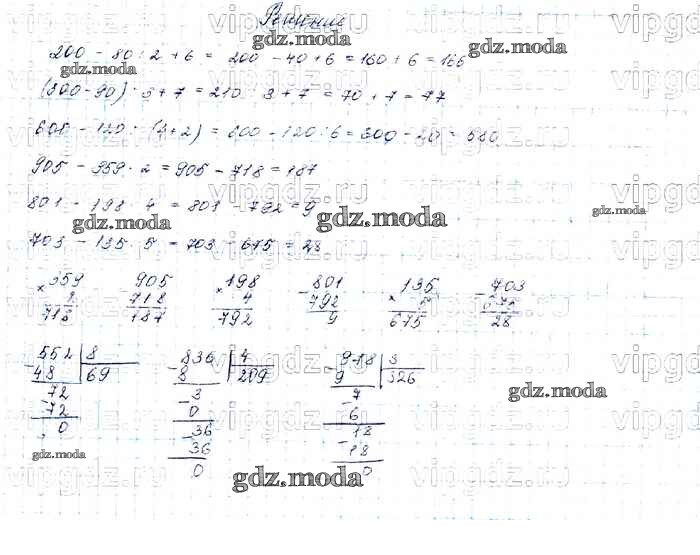 Решение
200 - 80 : 2 + 6 = 200 - 40 + 6 = 160 + 6 = 166
(300 - 90) : 3 + 7 = 210 : 3 + 7 = 70 + 7 = 77
600 - 120 : (4+2) = 600 - 120 : 6 = 600 - 20 = 580
905 - 359 · 2 = 905 - 718 = 187
801 - 198 · 4 = 801 - 792 = 9
703 - 135 · 5 = 703 - 675 = 28
× 359 - 905 × 198 - 801 × 135 - 703
2 718 4 792 5 675
718 187 792 9 675 28
- 552 8 - 836 4 - 978 3
48 69 8 209 9 326
- 72 - 3 - 7
72 0 6
0 - 36 - 18
36 18
0 0
gdz.moda
gdz.moda
gdz.moda
gdz.moda
gdz.moda
gdz.moda
gdz.moda
gdz.moda
gdz.moda
vipgdz.ru
vipgdz.ru
vipgdz.ru